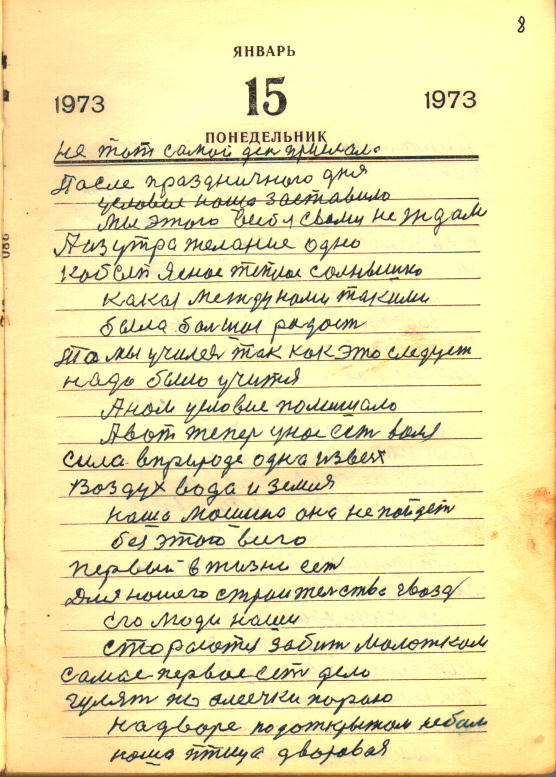 8
ЯНВАРЬ
1973 15 1973
ПОНЕДЕЛЬНИК
не тот самой ден пришлал.
После праздничного дня
условие наше заставило
мы этого себя своми не ждали
А из утра желание одно
кобыл ясное теплое солнышко
какая между нами такими
была болшая радост
То мы учился так как это следует
надо было учится
А ном условие помешало
А вот тепер у нас ест воля
сила в природе одна из всех
воздух вода и земля
наша мошина она не пойдет
без этого виго
первый в жизни ест
Для нашего строителства гвозд
Его люди наши
стораются забит молотком
самое первое ест дело
гулят по алеечки пораю
На дворе под открытом небам
наша птица дворовая